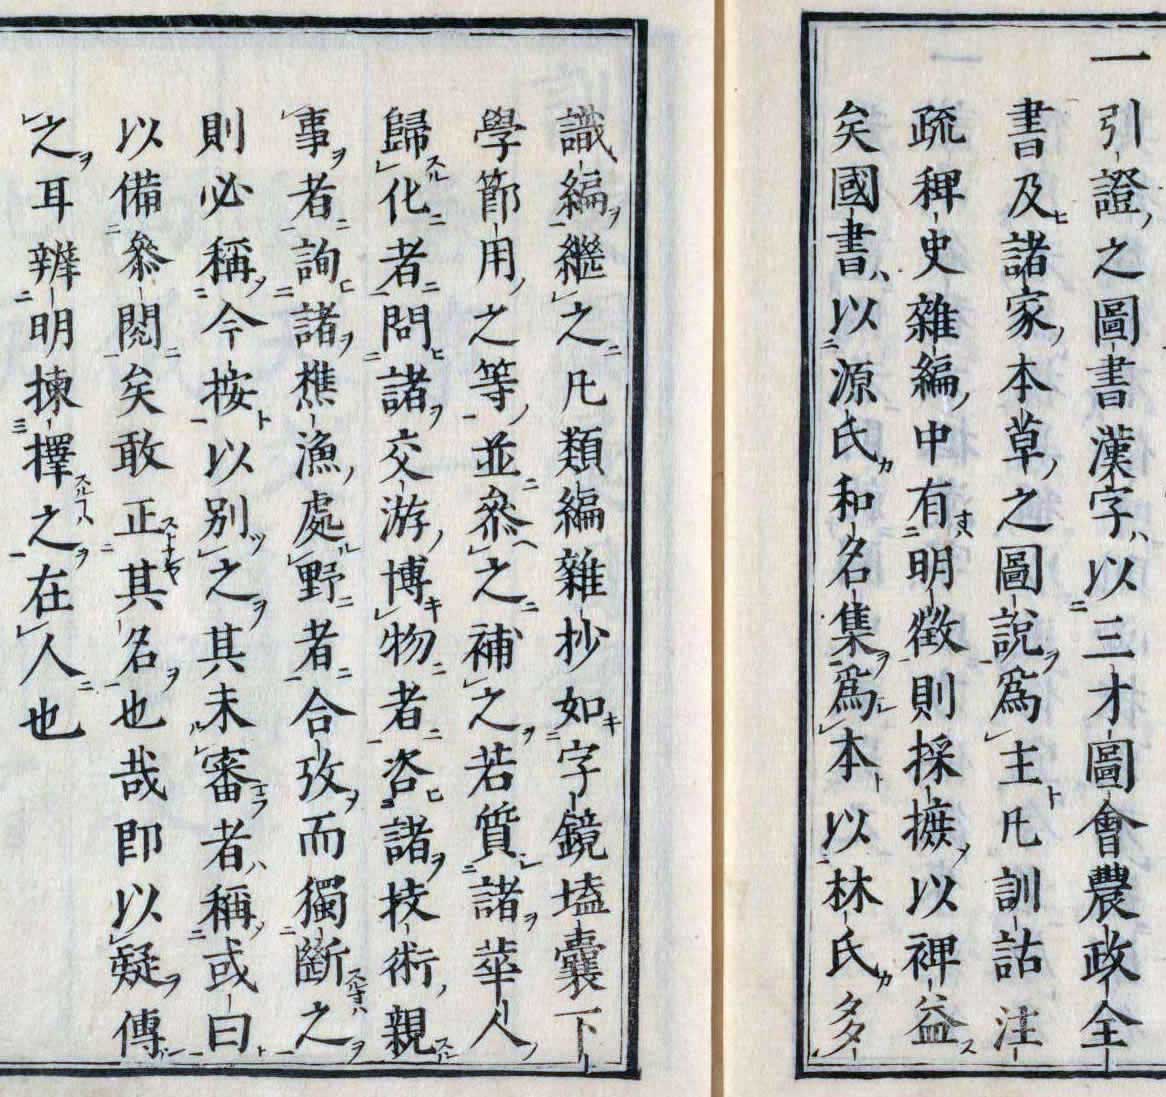 一引證之圖書漢字以三才圖會農政全
書及諸家本草之圖說爲主凡訓詁注
疏稗史雜編中有明徵則採摭以裨益
矣國書以源氏和名集爲本以林氏多
識編繼之凡類編雜抄如字鏡壒囊下
學節用之等並叅之補之若質諸華人
歸化者問諸交游博物者咨諸技術親
事者詢諸樵漁處野者合攷而獨斷之
則必稱今按以別之其未審者稱或曰
以備叅閱矣敢正其名也哉卽以疑傳
之耳辨明揀擇之在人也